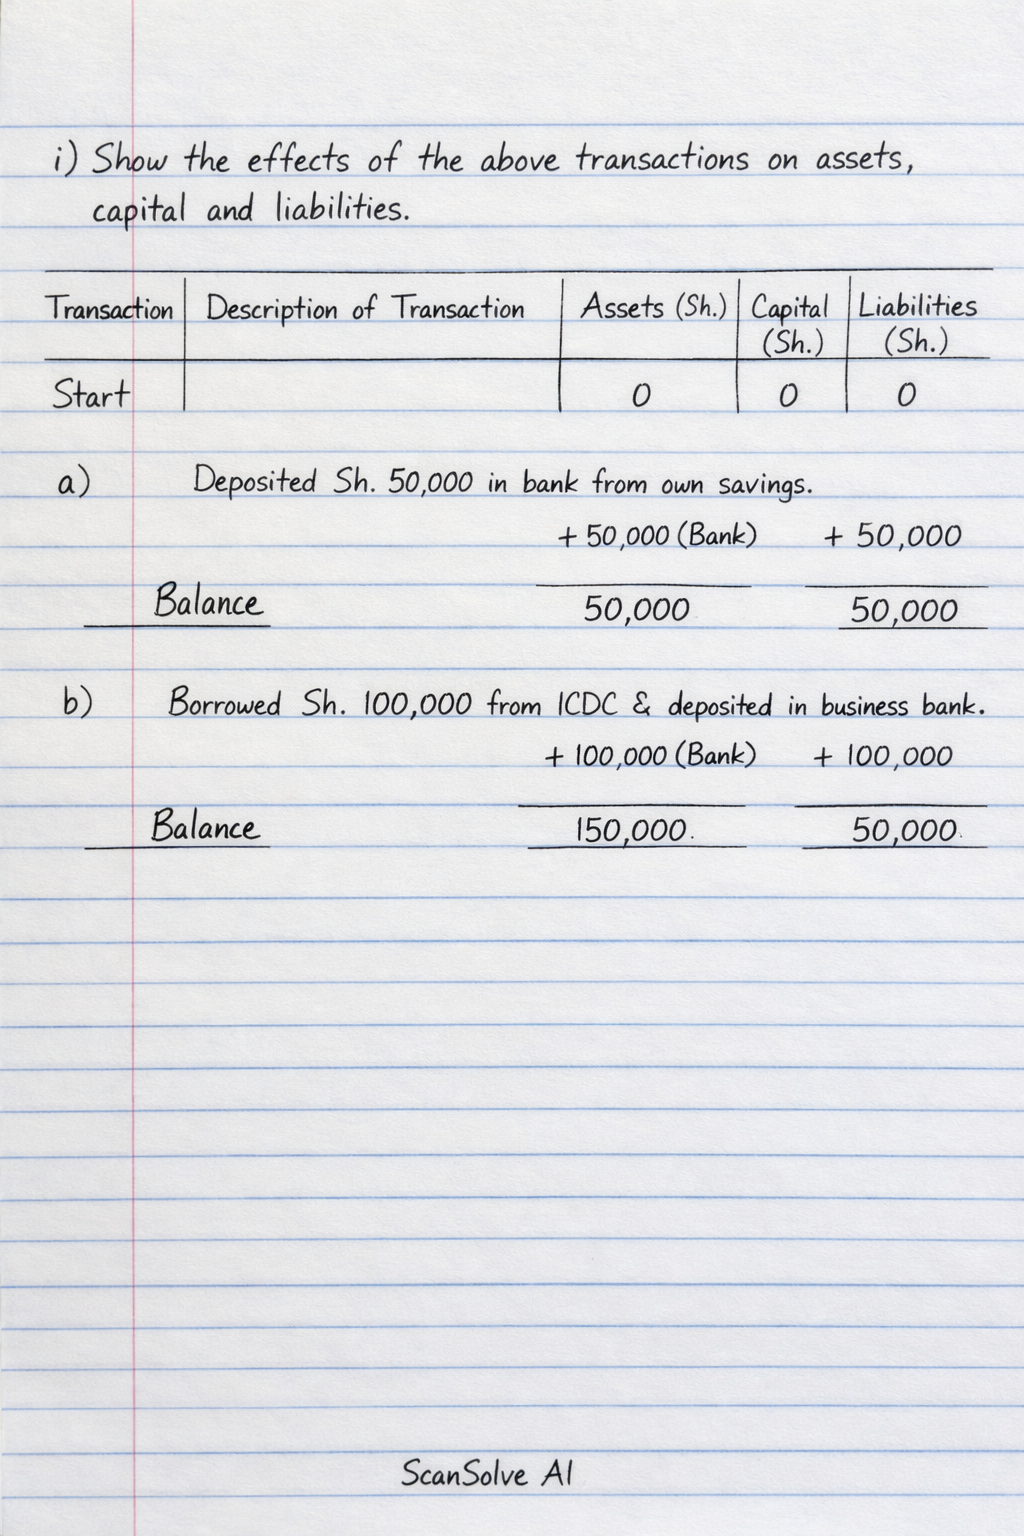 i) Show the effects of the above transactions on assets,
capital and liabilities.
Transaction Description of Transaction Assets (Sh.) Capital (Sh.) Liabilities (Sh.)
Start 0 0 0
a) Deposited Sh. 50,000 in bank from own savings.
+ 50,000 (Bank) + 50,000
Balance 50,000 50,000
b) Borrowed Sh. 100,000 from ICDC & deposited in business bank.
+ 100,000 (Bank) + 100,000
Balance 150,000. 50,000.
ScanSolve AI